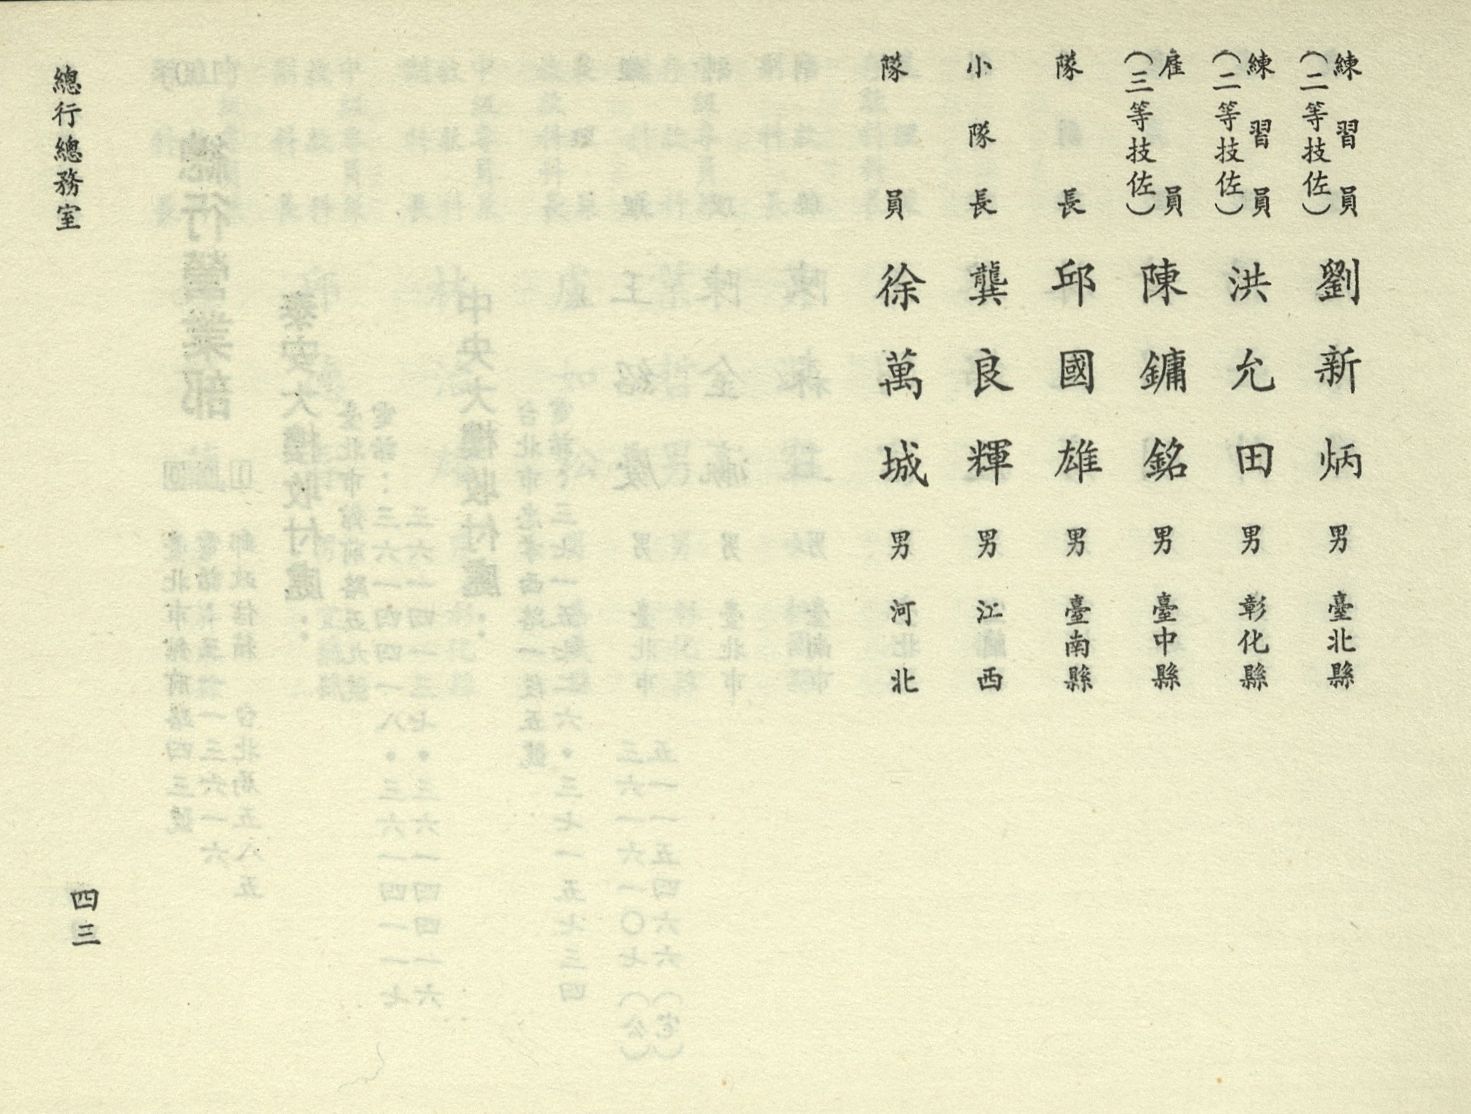 練習員(二等技佐) 劉新炳 男 臺北縣
練習員(二等技佐) 洪允田 男 彰化縣
雇員(三等技佐) 陳鏞銘 男 臺中縣
隊長 邱國雄 男 臺南縣
小隊長 龔良輝 男 江西
隊員 徐萬城 男 河北
總行總務室
四三